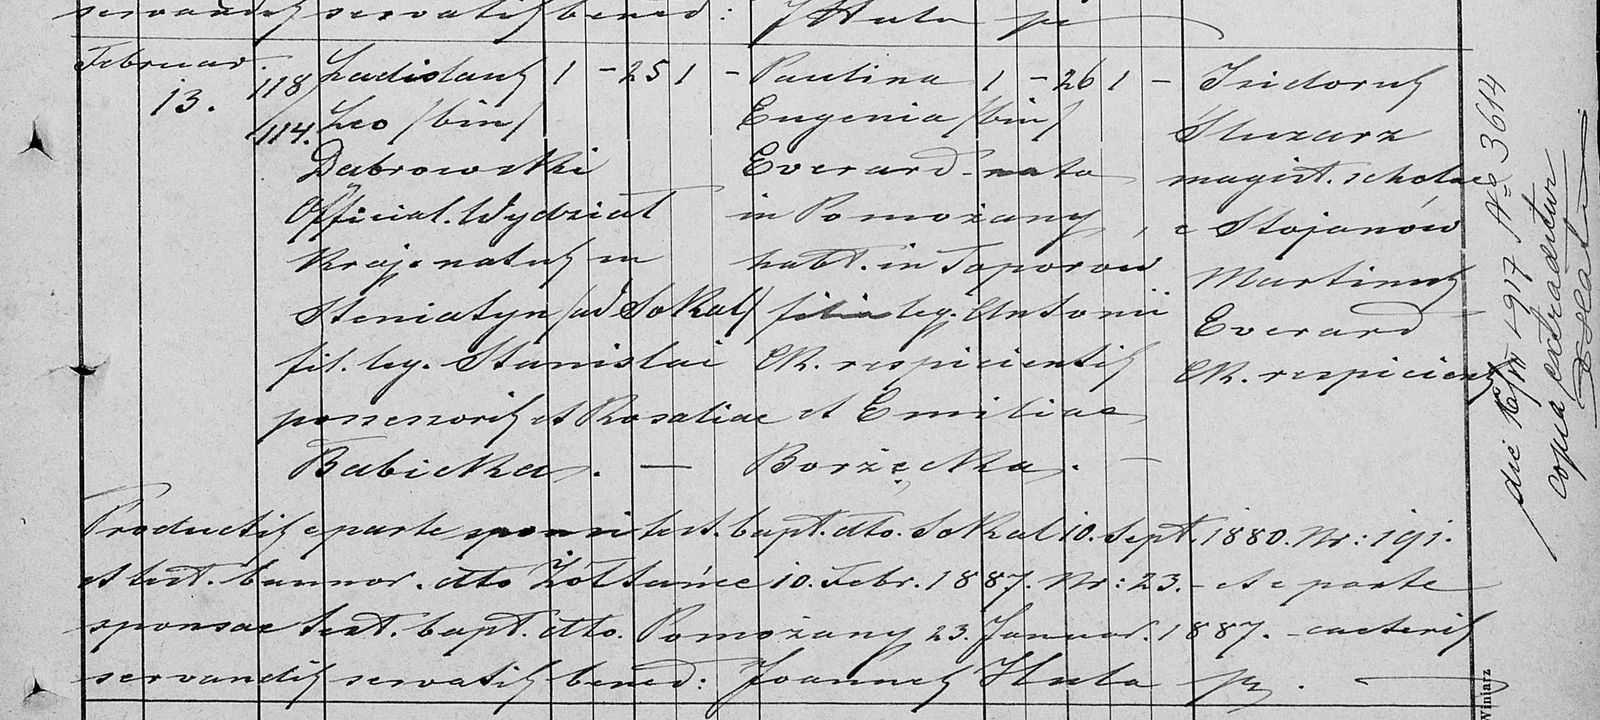 servandis servatis bened: J Huta pr
Februar. 118 Ladislaus 1 - 25 1 - Paulina 1 - 26 1 - Isidorus
13. /114. Leo /bin/ Eugenia /bin/ Sluzarz
Dabrowski Everard nata magist. scholae
Official. Wydziat in Pomożany, e Stojanów
Kraj. natus in habt. in Toporow Martinus
Steniatyn /ad Sokal/ filia leg. Antonii Everard
fil. leg. Stanislai CR. respicientis CR. respiciens
possessoris et Rosaliae et Emiliae
Babicka. — Borzęcka. —
Productis e parte sponsi test. bapt. dto. Sokal 10. Sept. 1880. Nr: 191.
et test. bannor. dto Żołtańce 10. Febr. 1887. Nr: 23. - et e parte
sponsae test. bapt. dto. Pomożany 23. Januar. 1887. - caeteris
servandis servatis bened: Joannes Huta pr.
die 1917 No 3614
copia extraditur
Winiarz